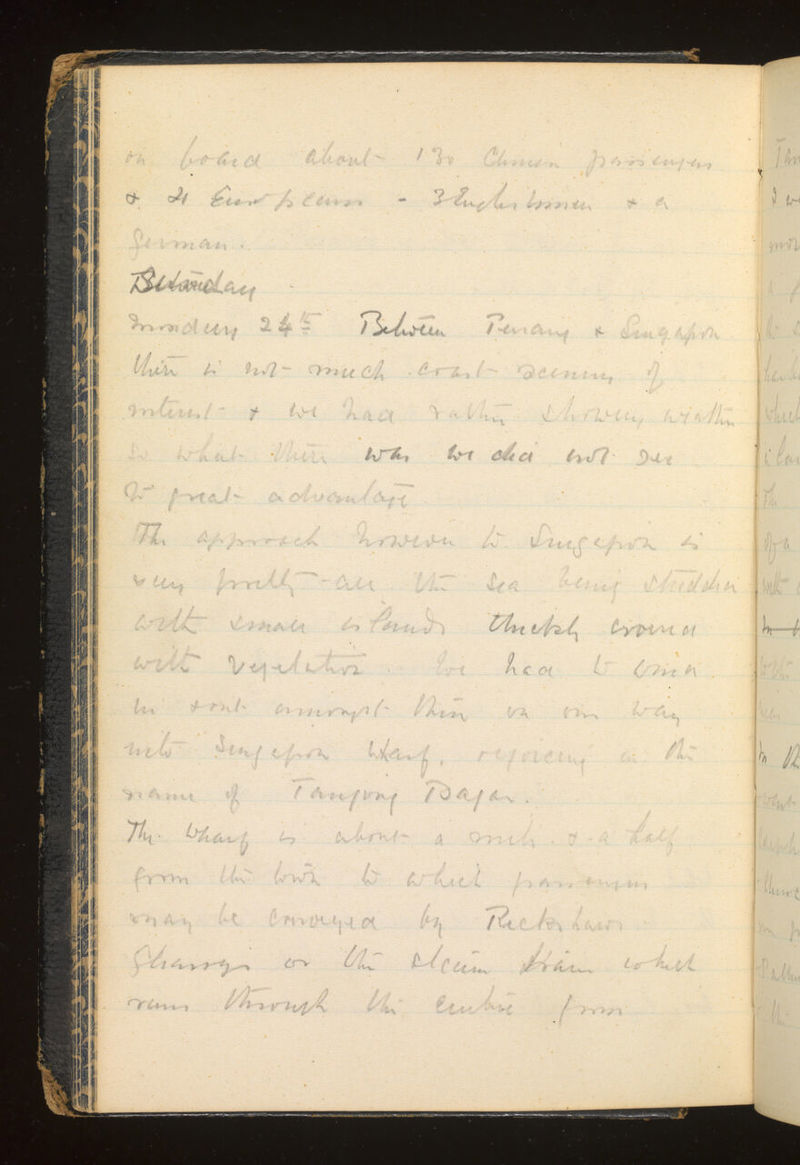 on board about 130 Chinese passengers
& 4 Europeans - 3 Englishmen & a
German.
Monday 24th Between Penang & Singapore
there is not much coast scenery of
interest & we had rather showery weather
so what there was we did not see
to great advantage
The approach however to Singapore is
very pretty - all the sea being studded
with small islands thickly covered
with vegetation. We had to wind
in & out amongst them on our way
into Singapore Wharf, rejoicing in the
name of Tanjong Pagar.
The Wharf is about a mile & a half
from the town to which passengers
may be conveyed by Rickshaws
Gharrys or the steam tram which
runs through the centre from